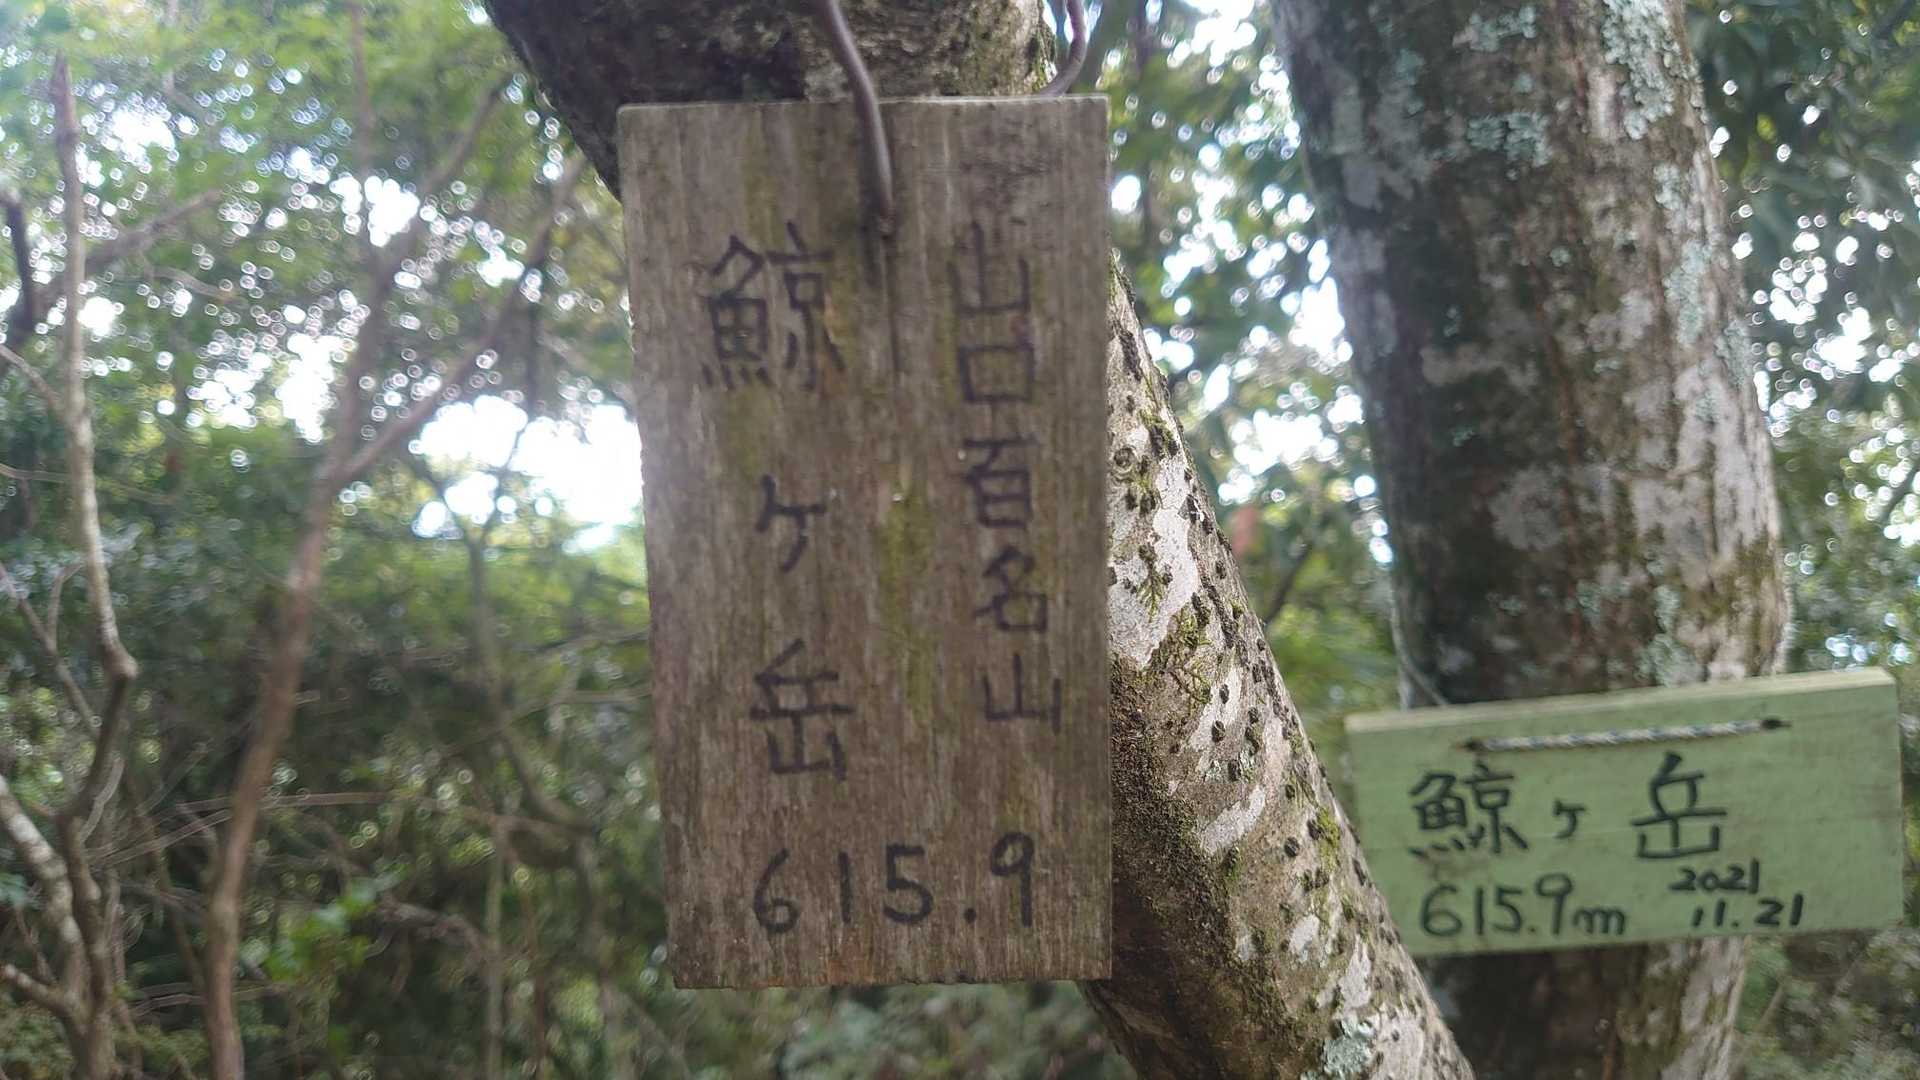 山口百名山
鯨ヶ岳
615.9
鯨ヶ岳
615.9m
2021
11.21